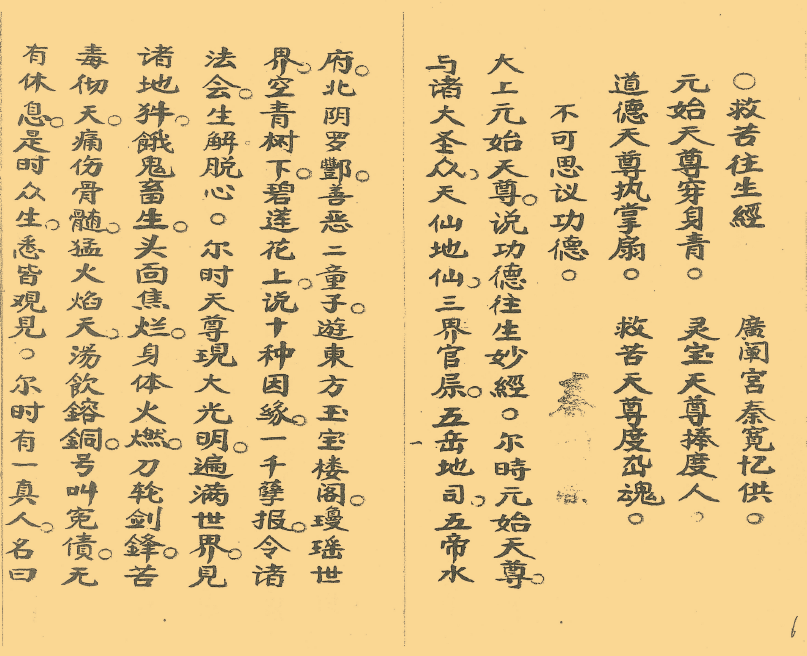 ○救苦往生經
廣阐宮秦寬忆供○
元始天尊穿身青○ 灵宝天尊捧度人○
道德天尊执掌扇○ 救苦天尊度孤魂○
不可思议功德○
大上元始天尊○说功德往生妙經○尔時元始天尊○
与诸大圣众、天仙地仙、三界官属○五岳地司、五帝水
府○北阴罗酆○善恶二童子○遊東方玉宝楼阁○瓊瑶世
界○空青树下○碧莲花上○说十种因缘○一千孽报○令诸
法会○生解脱心○尔时天尊現大光明○遍满世界○見
诸地犴○餓鬼畜生○头面焦烂○身体火燃○刀轮剑鋒○苦
毒彻天○痛伤骨髓○猛火焰天、湯飲鎔銅○号叫冤债○无
有休息○是时众生○悉皆观見○尔时有一真人○名曰
6